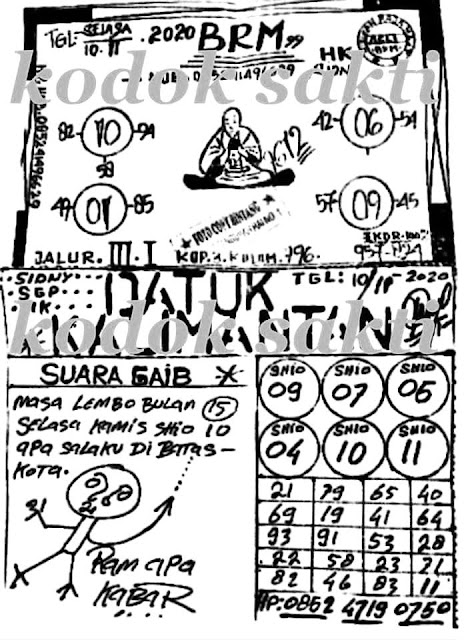 TGL: SELASA
10.11.2020 BRM 99
HK
kodok sakti
82 10 94
58
42 06 54
612
49 01 85
57 09 45
FOTO COPY BINTANG
JALUR. III. I
KOP.A.KOLOM.796.
SIDNY
SGP
HK
DATUK
TGL: 10/11-2020
KALIMANTAN
kodok sakti
SUARA GAIB
MASA LEMBO BULAN 15
SELASA KAMIS SHIO 10
APA SALAKU DI BATAS-
KOTA.
RAM APA
KABAR
SHIO SHIO SHIO
09 07 05
SHIO SHIO SHIO
04 10 11
21 79 65 40
69 19 41 64
93 91 53 28
22 58 23 71
82 46 83 11
HP:0852 4719 0750